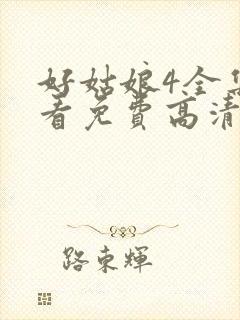 好姑娘4全集
看免费高清
路东辉